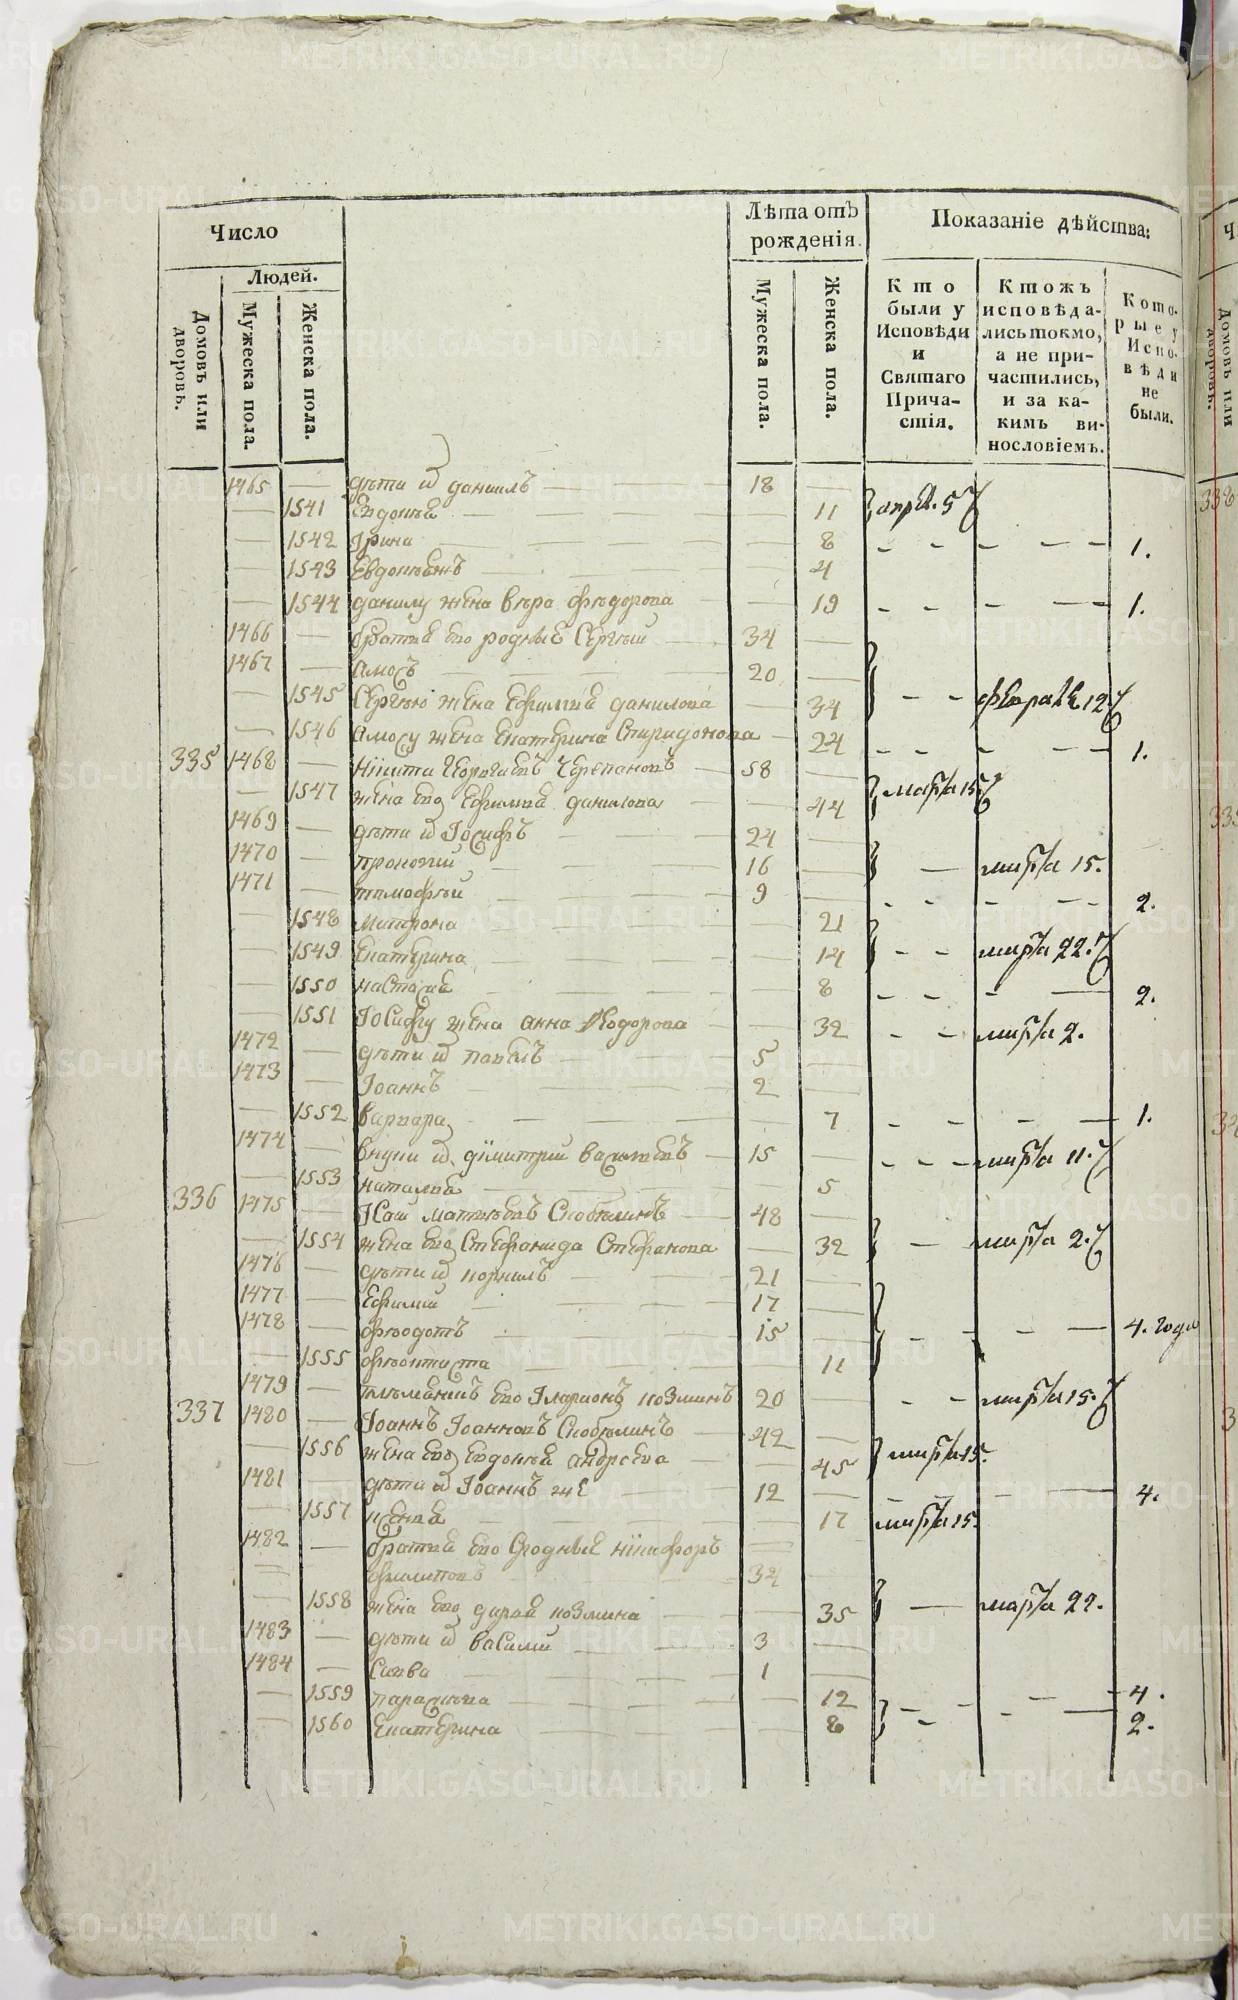 Число
Лѣта отъ рожденія.
Показаніе дѣйства:
Людей.
Домовъ или дворовъ.
Мужеска пола.
Женска пола.
Мужеска пола.
Женска пола.
Кто были у Исповѣди и Святаго Причастія.
Ктожъ исповѣдались токмо, а не причастились, и за какимъ винословіемъ.
Которые у Исповѣди не были.
1465 — дѣти и даниилъ — 18 —
— 1541 Евдокѣя — 11 апрѣл. 5
— 1542 Ірина — 8 — 1.
— 1543 — 4
— 1544 данилу жена вѣра фѣдорова — 19 — 1.
1466 — братья его родныѣ Сергѣй — 34 —
1467 — амосъ — 20 —
— 1545 Сергѣю жена Ефимия данилова — 34 — февраля 12.
— 1546 амосу жена екатерина Спиридонова — 24 — 1.
335 1468 — никита Георгиевъ Черепановъ — 58 —
— 1547 жена его Ефимия данилова — 44 марта 15
1469 — дѣти и Іосифъ — 24 —
1470 — прокопий — 16 — марта 15.
1471 — тимофѣй — 9 — 2.
— 1548 матрона — 21
— 1549 Екатерина — 14 — марта 22.
— 1550 настасия — 8 — 2.
— 1551 Іосифу жена анна Феодорова — 32 — марта 2.
1472 — дѣти и павелъ — 5
1473 — Іоаннъ — 2 —
— 1552 варвара — 7 — 1.
1474 — внуки и димитрий васильевъ — 15 — марта 11.
— 1553 наталия — 5
336 1475 — матвѣевъ — 48 —
— 1554 жена его Стефанида Стефанова — 32 — марта 2.
1476 — дѣти и корнилъ — 21
1477 — Ефимий — 17 —
1478 — фѣодотъ — 15 — 4. года
— 1555 фѣоктиста — 11
1479 — его Іларионъ козминъ 20 — марта 15.
337 1480 — Іоаннъ Іоанновъ — 42 —
— 1556 жена его евдокѣя андреева — 45 марта 15.
1481 — дѣти и Іоаннъ же — 12 — 4.
— 1557 ксения — 17 марта 15.
1482 — братья его Сродныѣ никифоръ
филиповъ — 34
— 1558 жена его дария козмина — 35 — марта 22.
1483 — дѣти и василий — 3 —
1484 — савва — 1 —
— 1559 парасковя — 12 — 4.
— 1560 Екатерина — 8 — 2.
METRIKI.GASO-URAL.RU